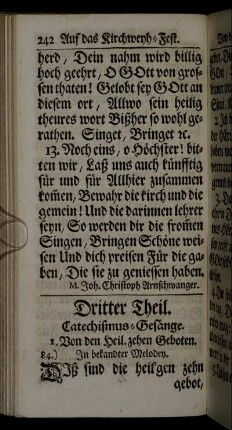 242 Auf das Kirchweyh-Fest.
herd, Dein nahm wird billig
hoch geehrt, O GOtt von gros-
sen thaten! Gelobt sey GOtt an
diesem ort, Allwo sein heilig
theures wort Bißher so wohl ge-
rathen. Singet, Bringet ꝛc.
13. Noch eins, o Höchster! bit-
ten wir, Laß uns auch künfftig
für und für Allhier zusammen
kom̃en, Bewahr die kirch und die
gemein! Und die darinnen lehrer
seyn, So werden dir die from̃en
Singen, Bringen Schöne wei-
sen Und dich preisen Für die ga-
ben, Die sie zu geniessen haben.
M. Joh. Christoph Arnschwanger.
Dritter Theil.
Catechismus-Gesänge.
1. Von den Heil. zehen Geboten.
84.) In bekandter Melodey.
DIß sind die heilgen zehn
gebot,